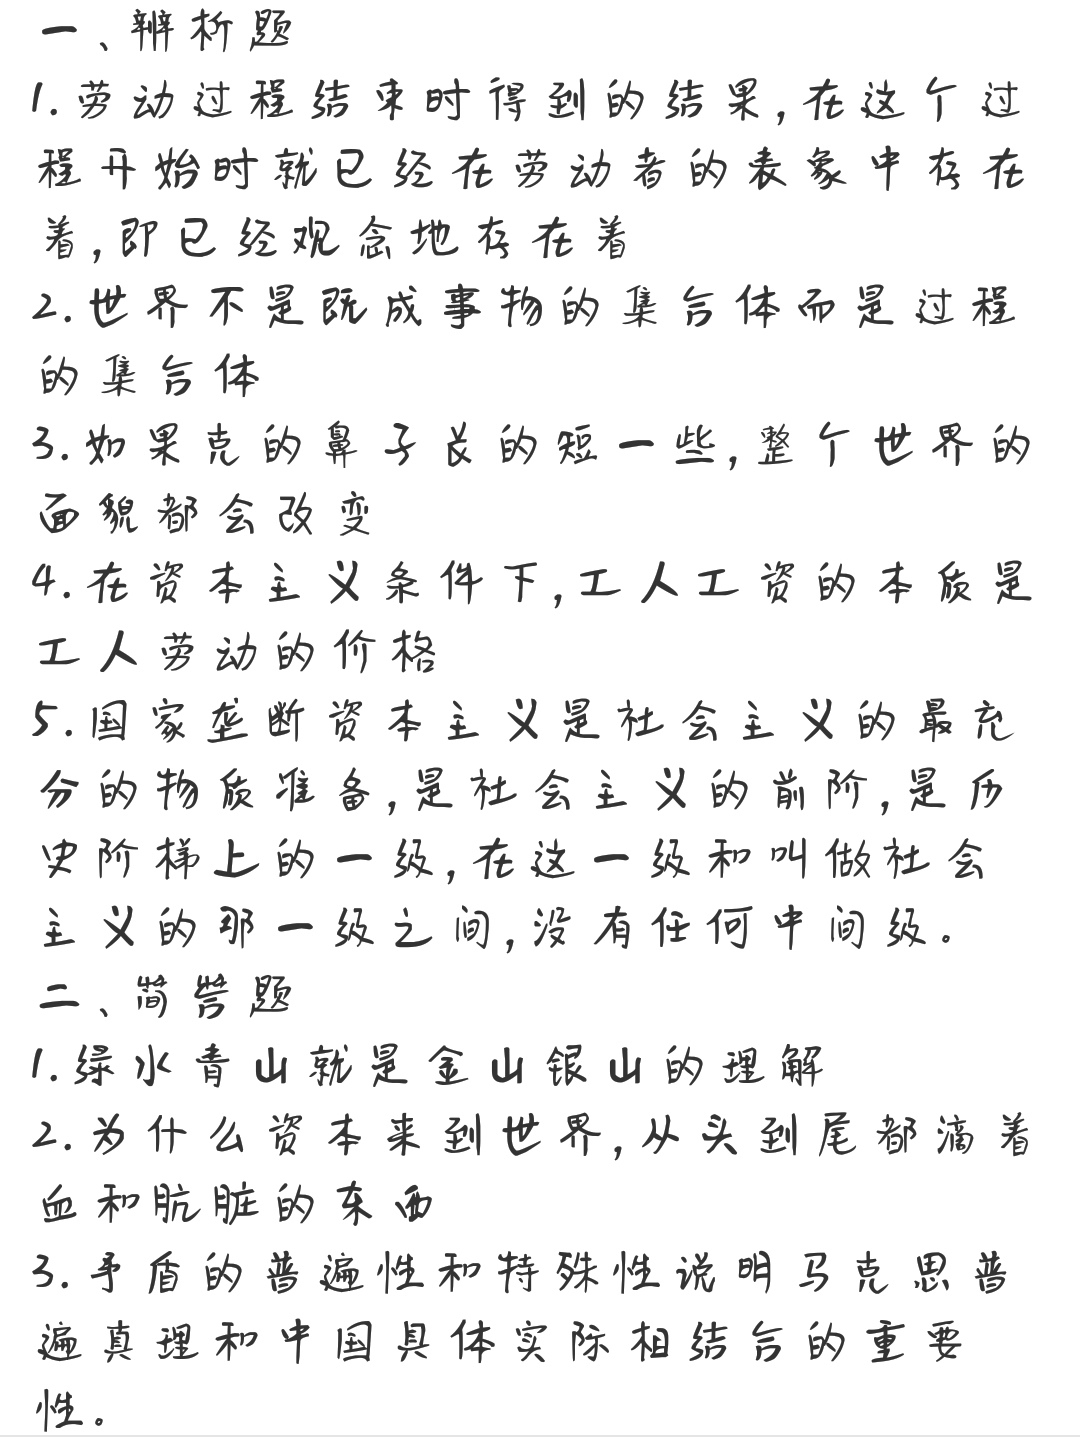 一、辨析题
1.劳动过程结束时得到的结果,在这个过
程开始时就已经在劳动者的表象中存在
着,即已经观念地存在着
2.世界不是既成事物的集合体而是过程
的集合体
3.如果克的鼻子长的短一些,整个世界的
面貌都会改变
4.在资本主义条件下,工人工资的本质是
工人劳动的价格
5.国家垄断资本主义是社会主义的最充
分的物质准备,是社会主义的前阶,是历
史阶梯上的一级,在这一级和叫做社会
主义的那一级之间,没有任何中间级。
二、简答题
1.绿水青山就是金山银山的理解
2.为什么资本来到世界,从头到尾都滴着
血和肮脏的东西
3.矛盾的普遍性和特殊性说明马克思普
遍真理和中国具体实际相结合的重要
性。